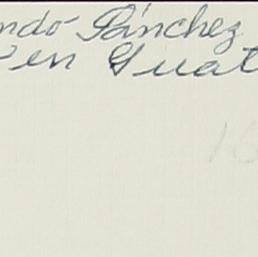 ndo Sánchez
en Guat
16